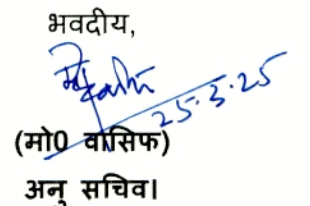 भवदीय,
25.3.25
(मो0 वासिफ)
अनु सचिव।